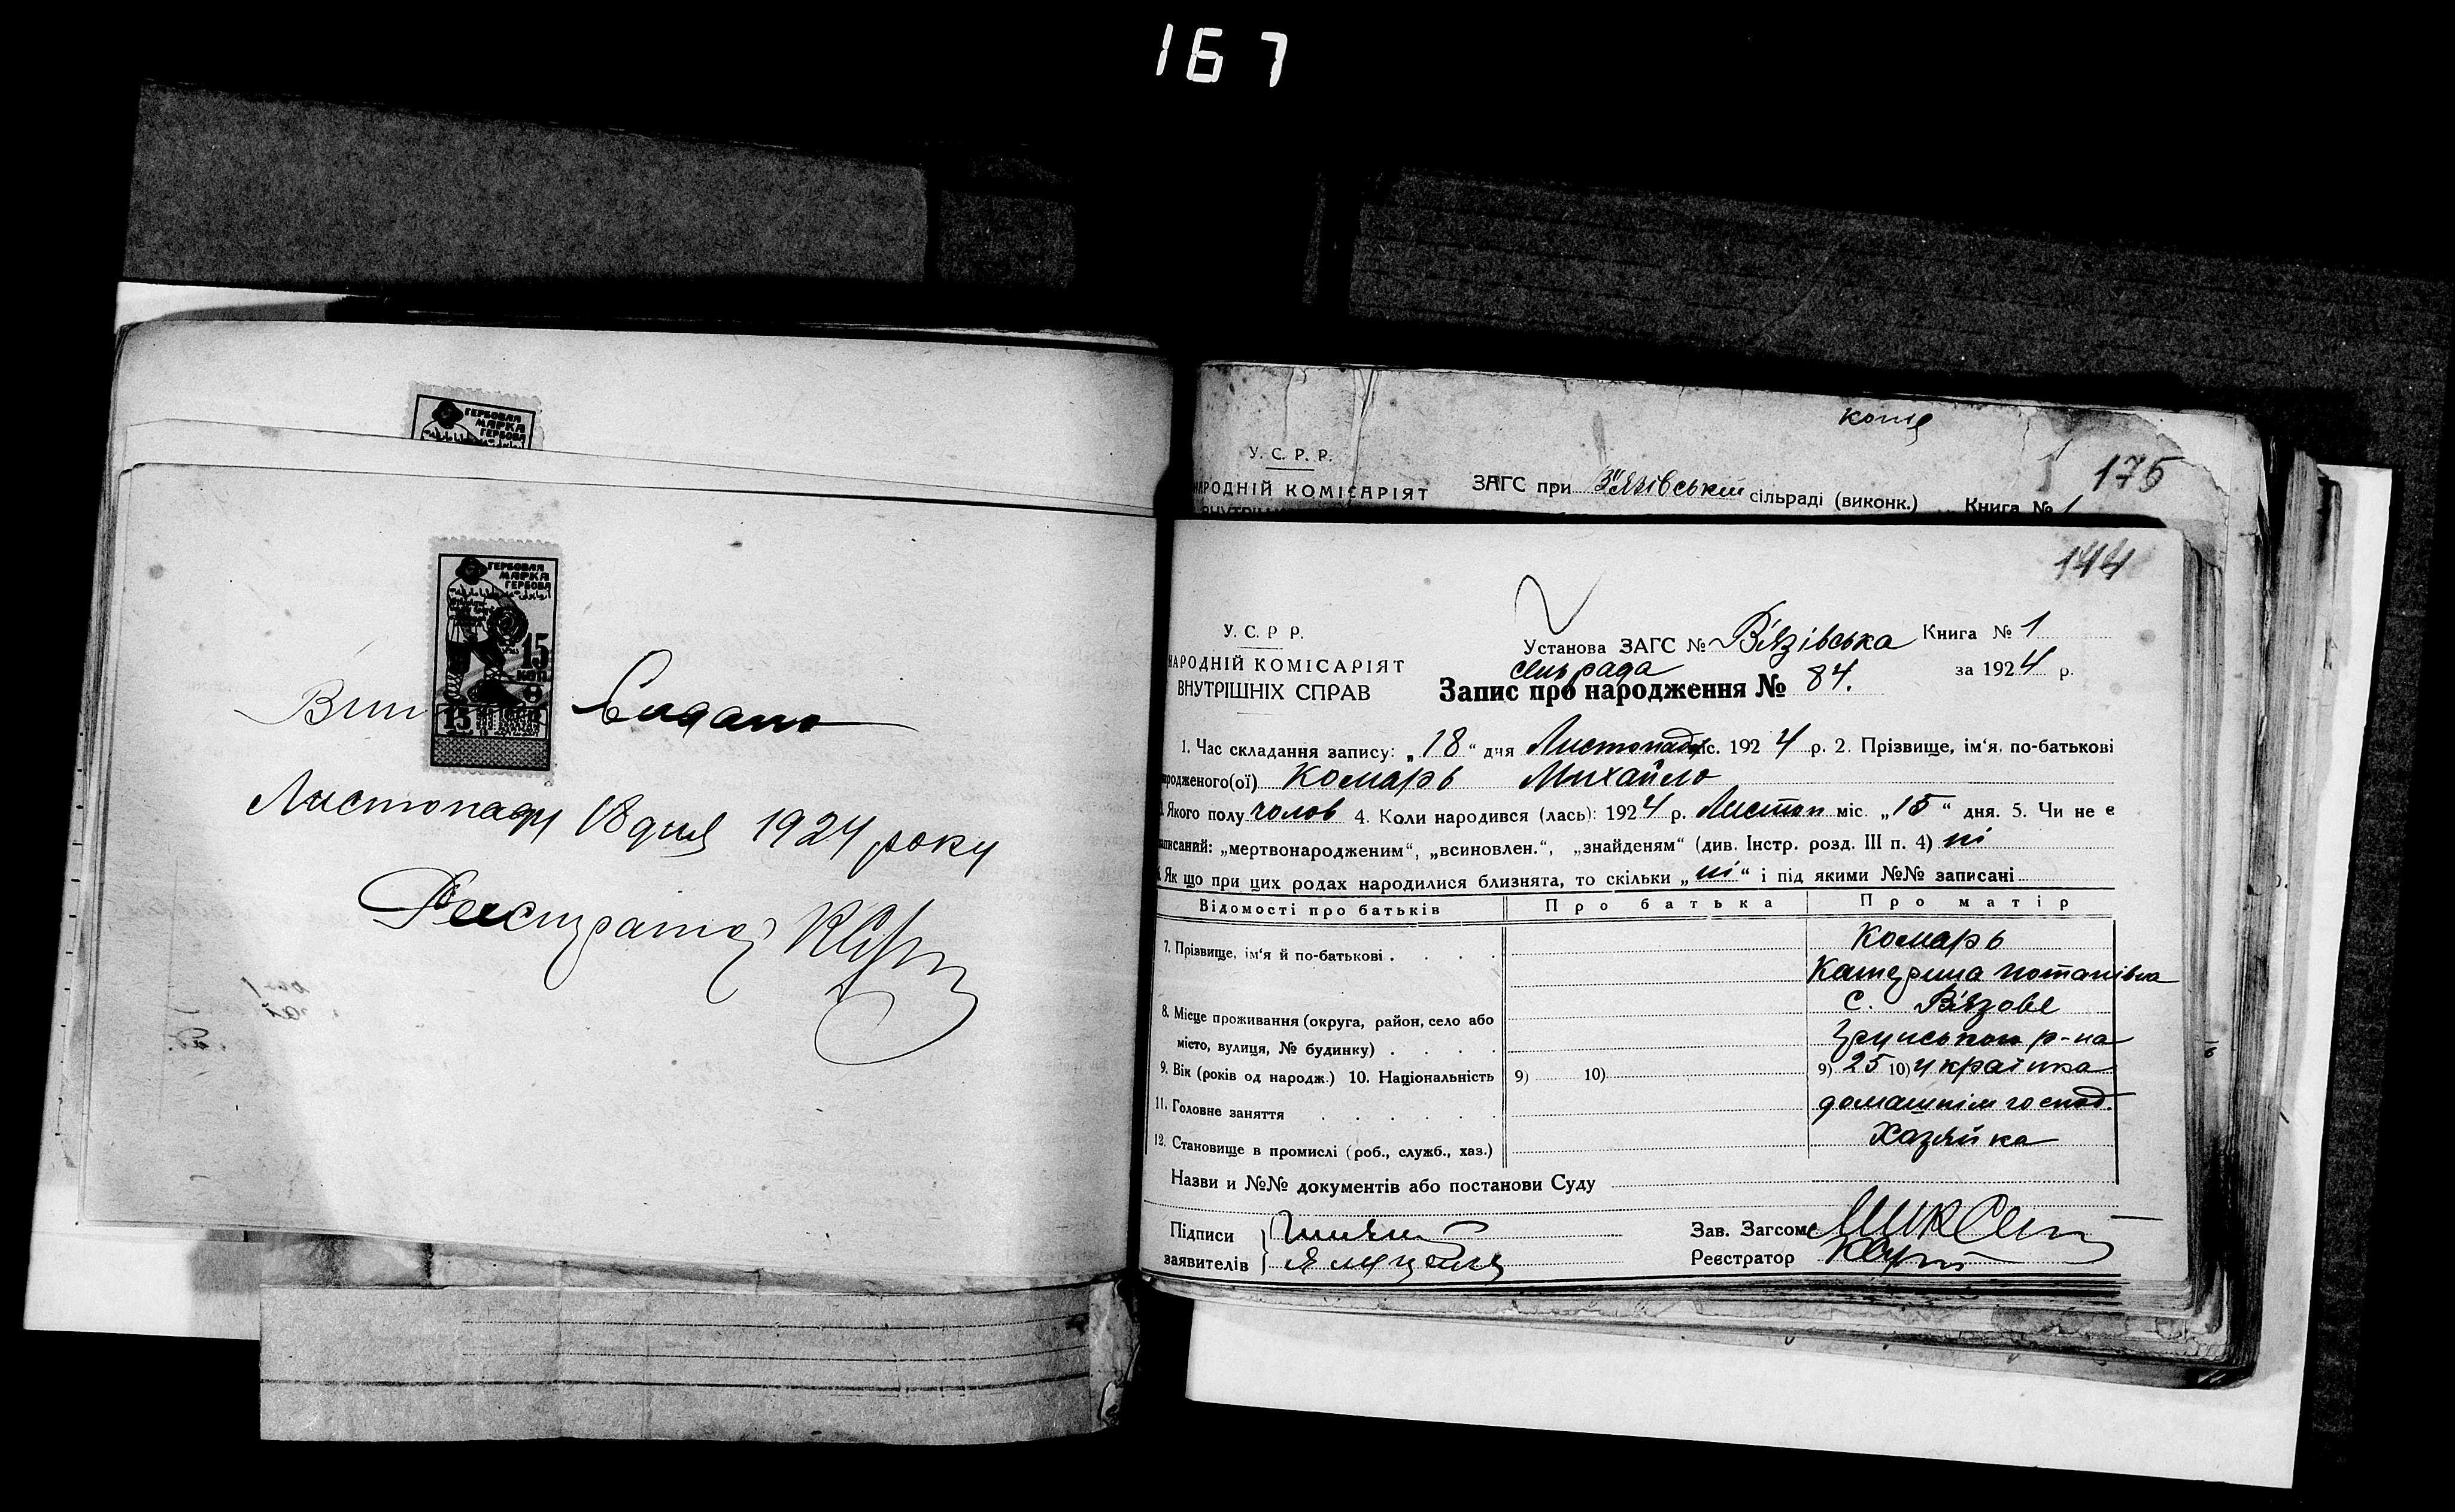 167
ГЕРБОВАЯ
МАРКА
ГЕРБОВА
ГЕРБОВАЯ
МАРКА
ГЕРБОВА
15
КОП.
15
Видано
Листопаду 18 дня 1924 року
Реєстратор
копія
У. С. Р. Р.
175
НАРОДНІЙ КОМІСАРІЯТ
ЗАГС при В'язівській сільраді (виконк.) Книга № 1
144
У. С. Р. Р.
Установа ЗАГС № В'язівська Книга № 1
НАРОДНІЙ КОМІСАРІЯТ
сільрада за 1924 р.
ВНУТРІШНІХ СПРАВ
Запис про народження № 84.
1. Час складання запису: „18“ дня Листопада міс. 1924 р. 2. Прізвище, ім'я, по-батькові
народженого(ої) Комарь Михайло
3. Якого полу чолов 4. Коли народився (лась): 1924 р. Листоп міс. „15“ дня. 5. Чи не є
записаний: „мертвонародженим“, „всиновлен.“, „знайденям“ (див. Інстр. розд. III п. 4) ні
6. Як що при цих родах народилися близнята, то скільки „ні“ і під якими №№ записані
Відомості про батьків Про батька Про матір
7. Прізвище, ім'я й по-батькові . . . . Комарь
Катерина Потапівна
8. Місце проживання (округа, район, село або с. В'язове
місто, вулиця, № будинку) . . . . р-на
9. Вік (років од народж.) 10. Національність 9) 10) 9) 25 10) українка
11. Головне заняття . . . . . домашнім господ.
12. Становище в промислі (роб., служб., хаз.) Хазяйка
Назви и №№ документів або постанови Суду
Підписи
заявителів
Зав. Загсом
Реєстратор